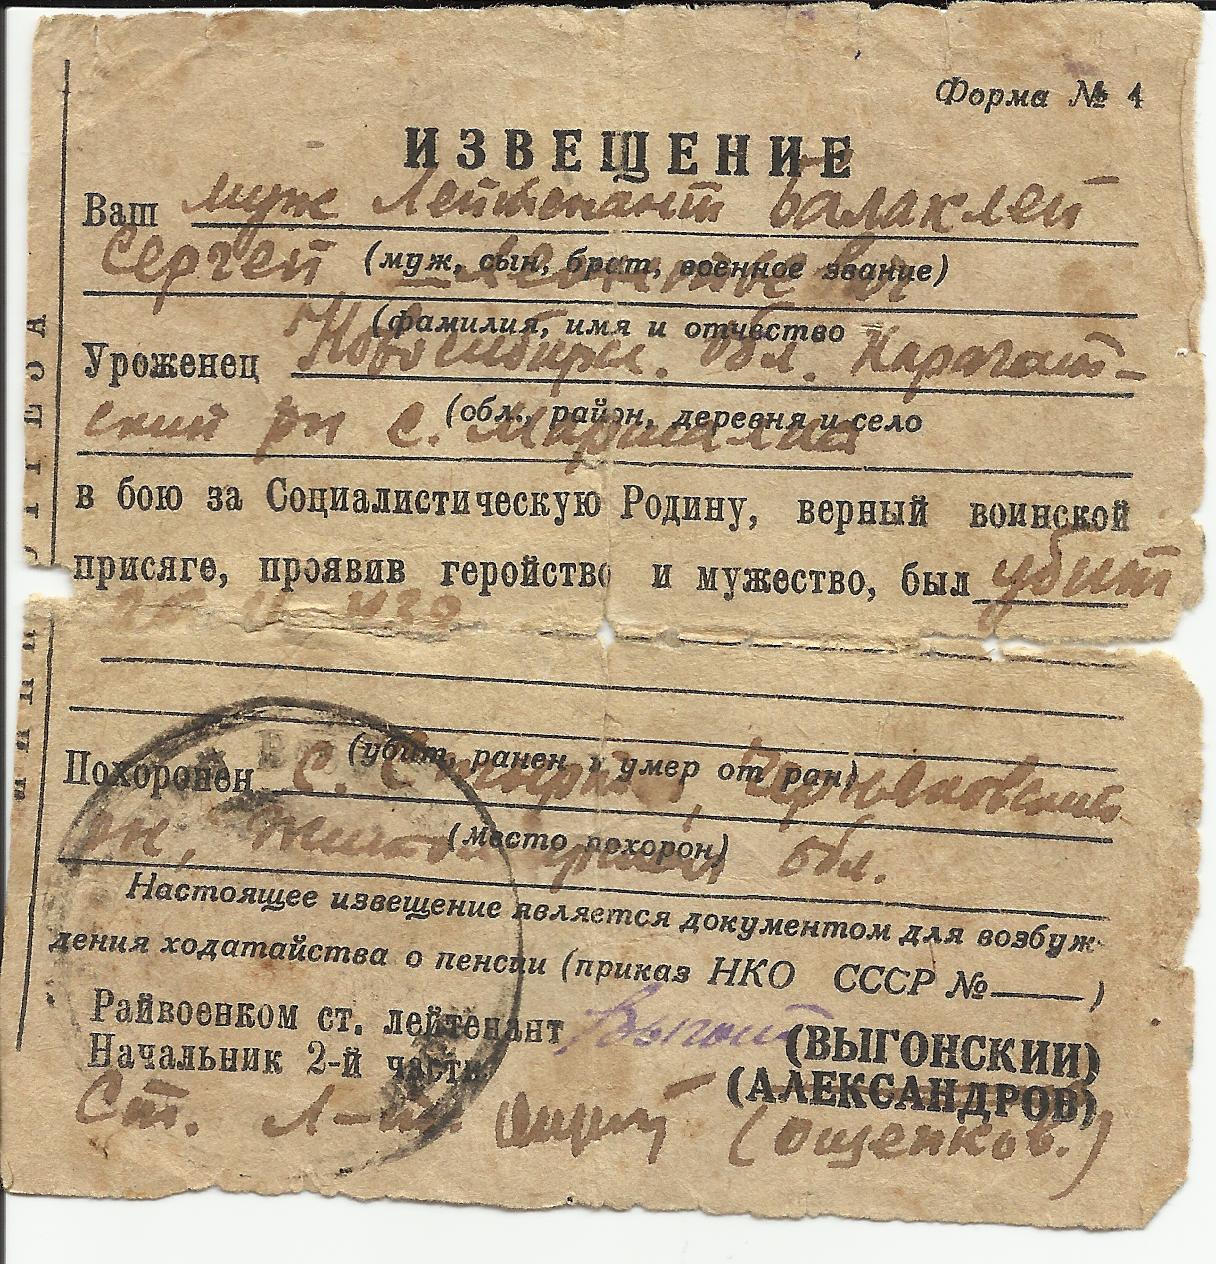 Форма № 4
ИЗВЕЩЕНИЕ
Ваш муж Лейтенант Балаклей
Сергей
(муж, сын, брат, военное звание)
(фамилия, имя и отчество
Уроженец Новосибирск. обл. Каргат-
ский рн с.
(обл., район, деревня и село
в бою за Социалистическую Родину, верный воинской
присяге, проявив геройство и мужество, был убит
(убит, ранен и умер от ран)
Похоронен с. Черняховский
рн, Житомирской обл.
(место похорон)
Настоящее извещение является документом для возбуж-
дения ходатайства о пенсии (приказ НКО СССР №——)
Райвоенком ст. лейтенант (ВЫГОНСКИЙ)
Начальник 2-й части (АЛЕКСАНДРОВ)
Ст. л-т. (Ощепков.)